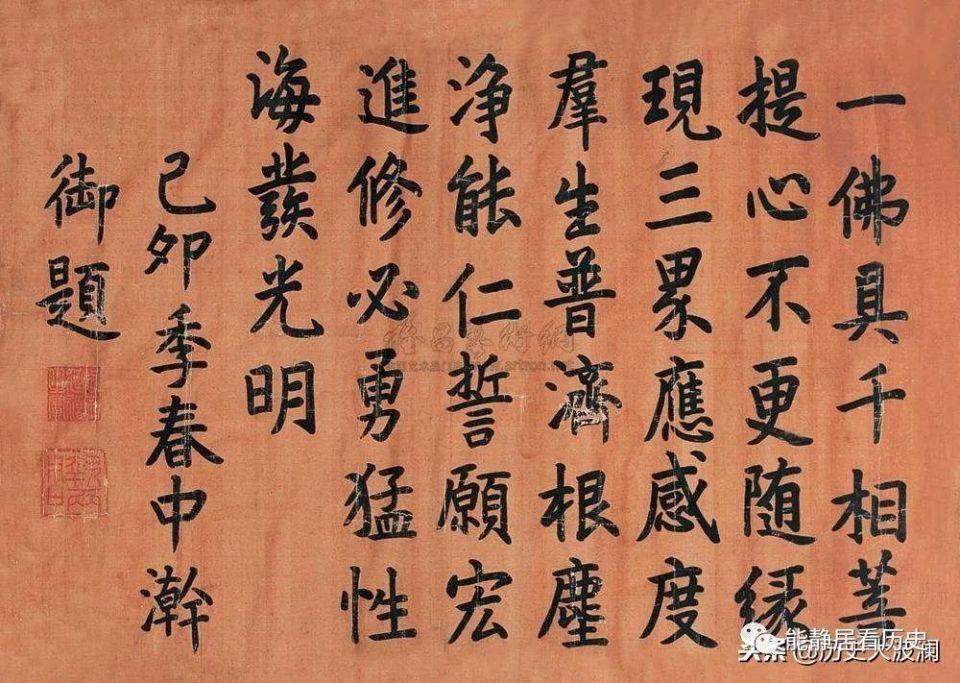 一佛具千相菩
提心不更随緣
現三界應感度
羣生普濟根塵
净能仁誓願宏
進修必勇猛性
海發光明
己卯季春中澣
御題
能静居看历史
头条@历史大波澜